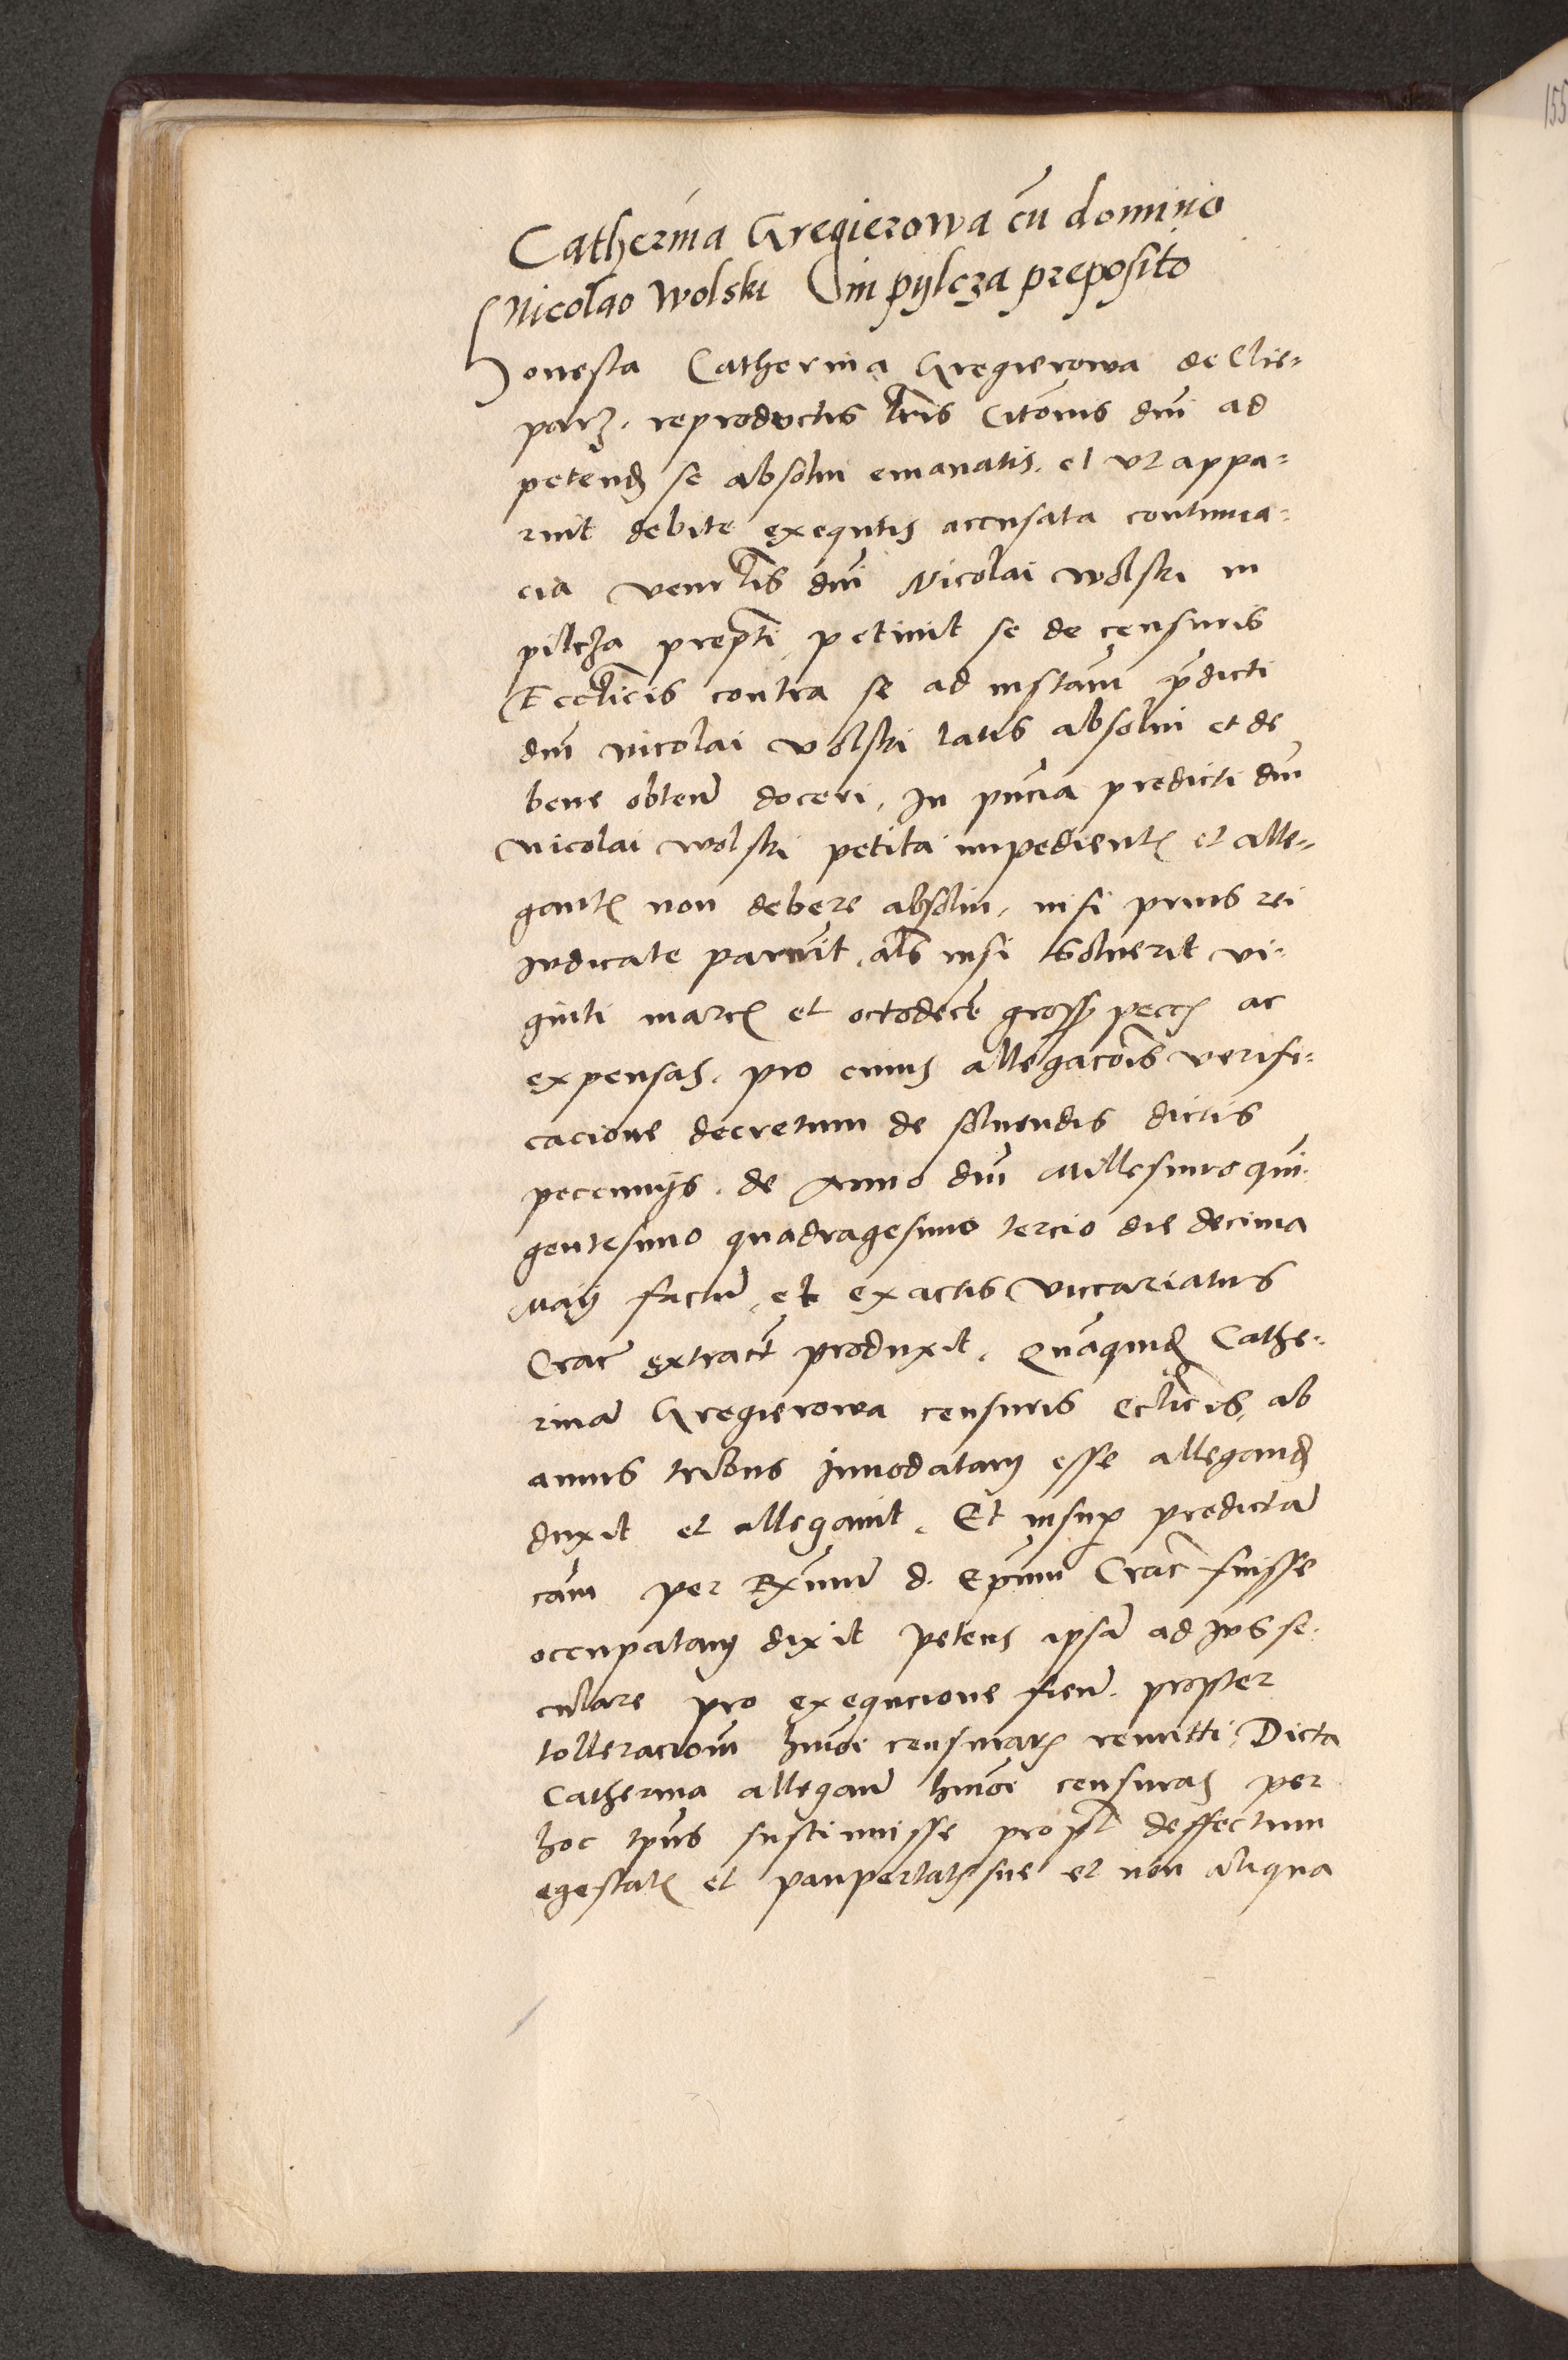 Catherina Gregierowa cū domino
Nicolao Wolski in pylcza preposito
Honesta Catherina Gregierowa de Clie-
parz. reproductis lris Citōnis dni ad
petend se absolui emanatis. et vt appa-
ruit debite exequtis accusata contuma-
cia venerlis dni Nicolai wolski in
pilcza prepti petiuit se de censuris
Ecclicis contra se ad instam p̄dicti
dni nicolai volski latis absolui et de
bene obtenˀ doceri, In pn̄cia predicti dni
nicolai wolski petita impedientꝭ et alle-
gantꝭ non debere absolui, nisi prius rei
iudicate paruit, als nisi soluerit vi-
ginti marcꝭ et octodecē grosß pecc ac
expensas, pro cuius allegacōis verifi-
cacione decretum de soluendis dictis
pecunijs. de Anno dni Millesimo quin-
gentesimo quadragesimo tercio die decima
Maij factū, et ex actis vicariatus
Crac̄ extract produxit, Quāquid Cathe-
rinā Gregierowa censuris ecclicis, ab
annis tribus innodatam esse allegand
duxit et allegauit, Et insup predictā
cām per Rx̄mum d. Ep̄um Crac̄ fuisse
occupatam dixit petens ipsā ad ius se-
culare pro exequcione fienˀ. propter
tolleracionē hmōi censurarꝭ remitti, Dicta
Catherina alleganˀ hmōi censuras per
hoc tpus sustinuisse propt deffectum
egestatꝭ et paupertatꝭ sue et non aliqua
155